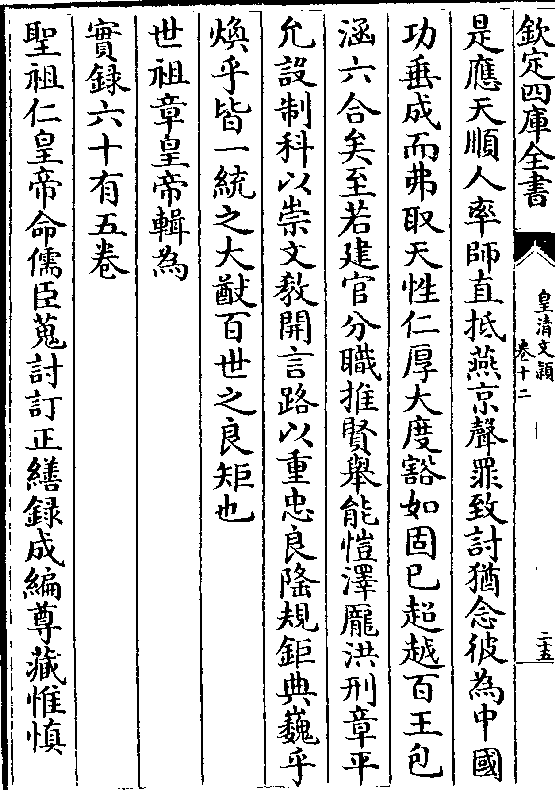 欽定四庫全書
皇清文穎
卷十二
二五
是應天順人率師直抵燕京聲罪致討猶念彼為中國
功垂成而弗取天性仁厚大度豁如固已超越百王包
涵六合矣至若建官分職推賢舉能愷澤龎洪刑章平
允設制科以崇文教開言路以重忠良隆規鉅典巍乎
煥乎皆一統之大猷百世之良矩也
世祖章皇帝輯為
實録六十有五卷
聖祖仁皇帝命儒臣蒐討訂正繕録成編尊藏惟慎